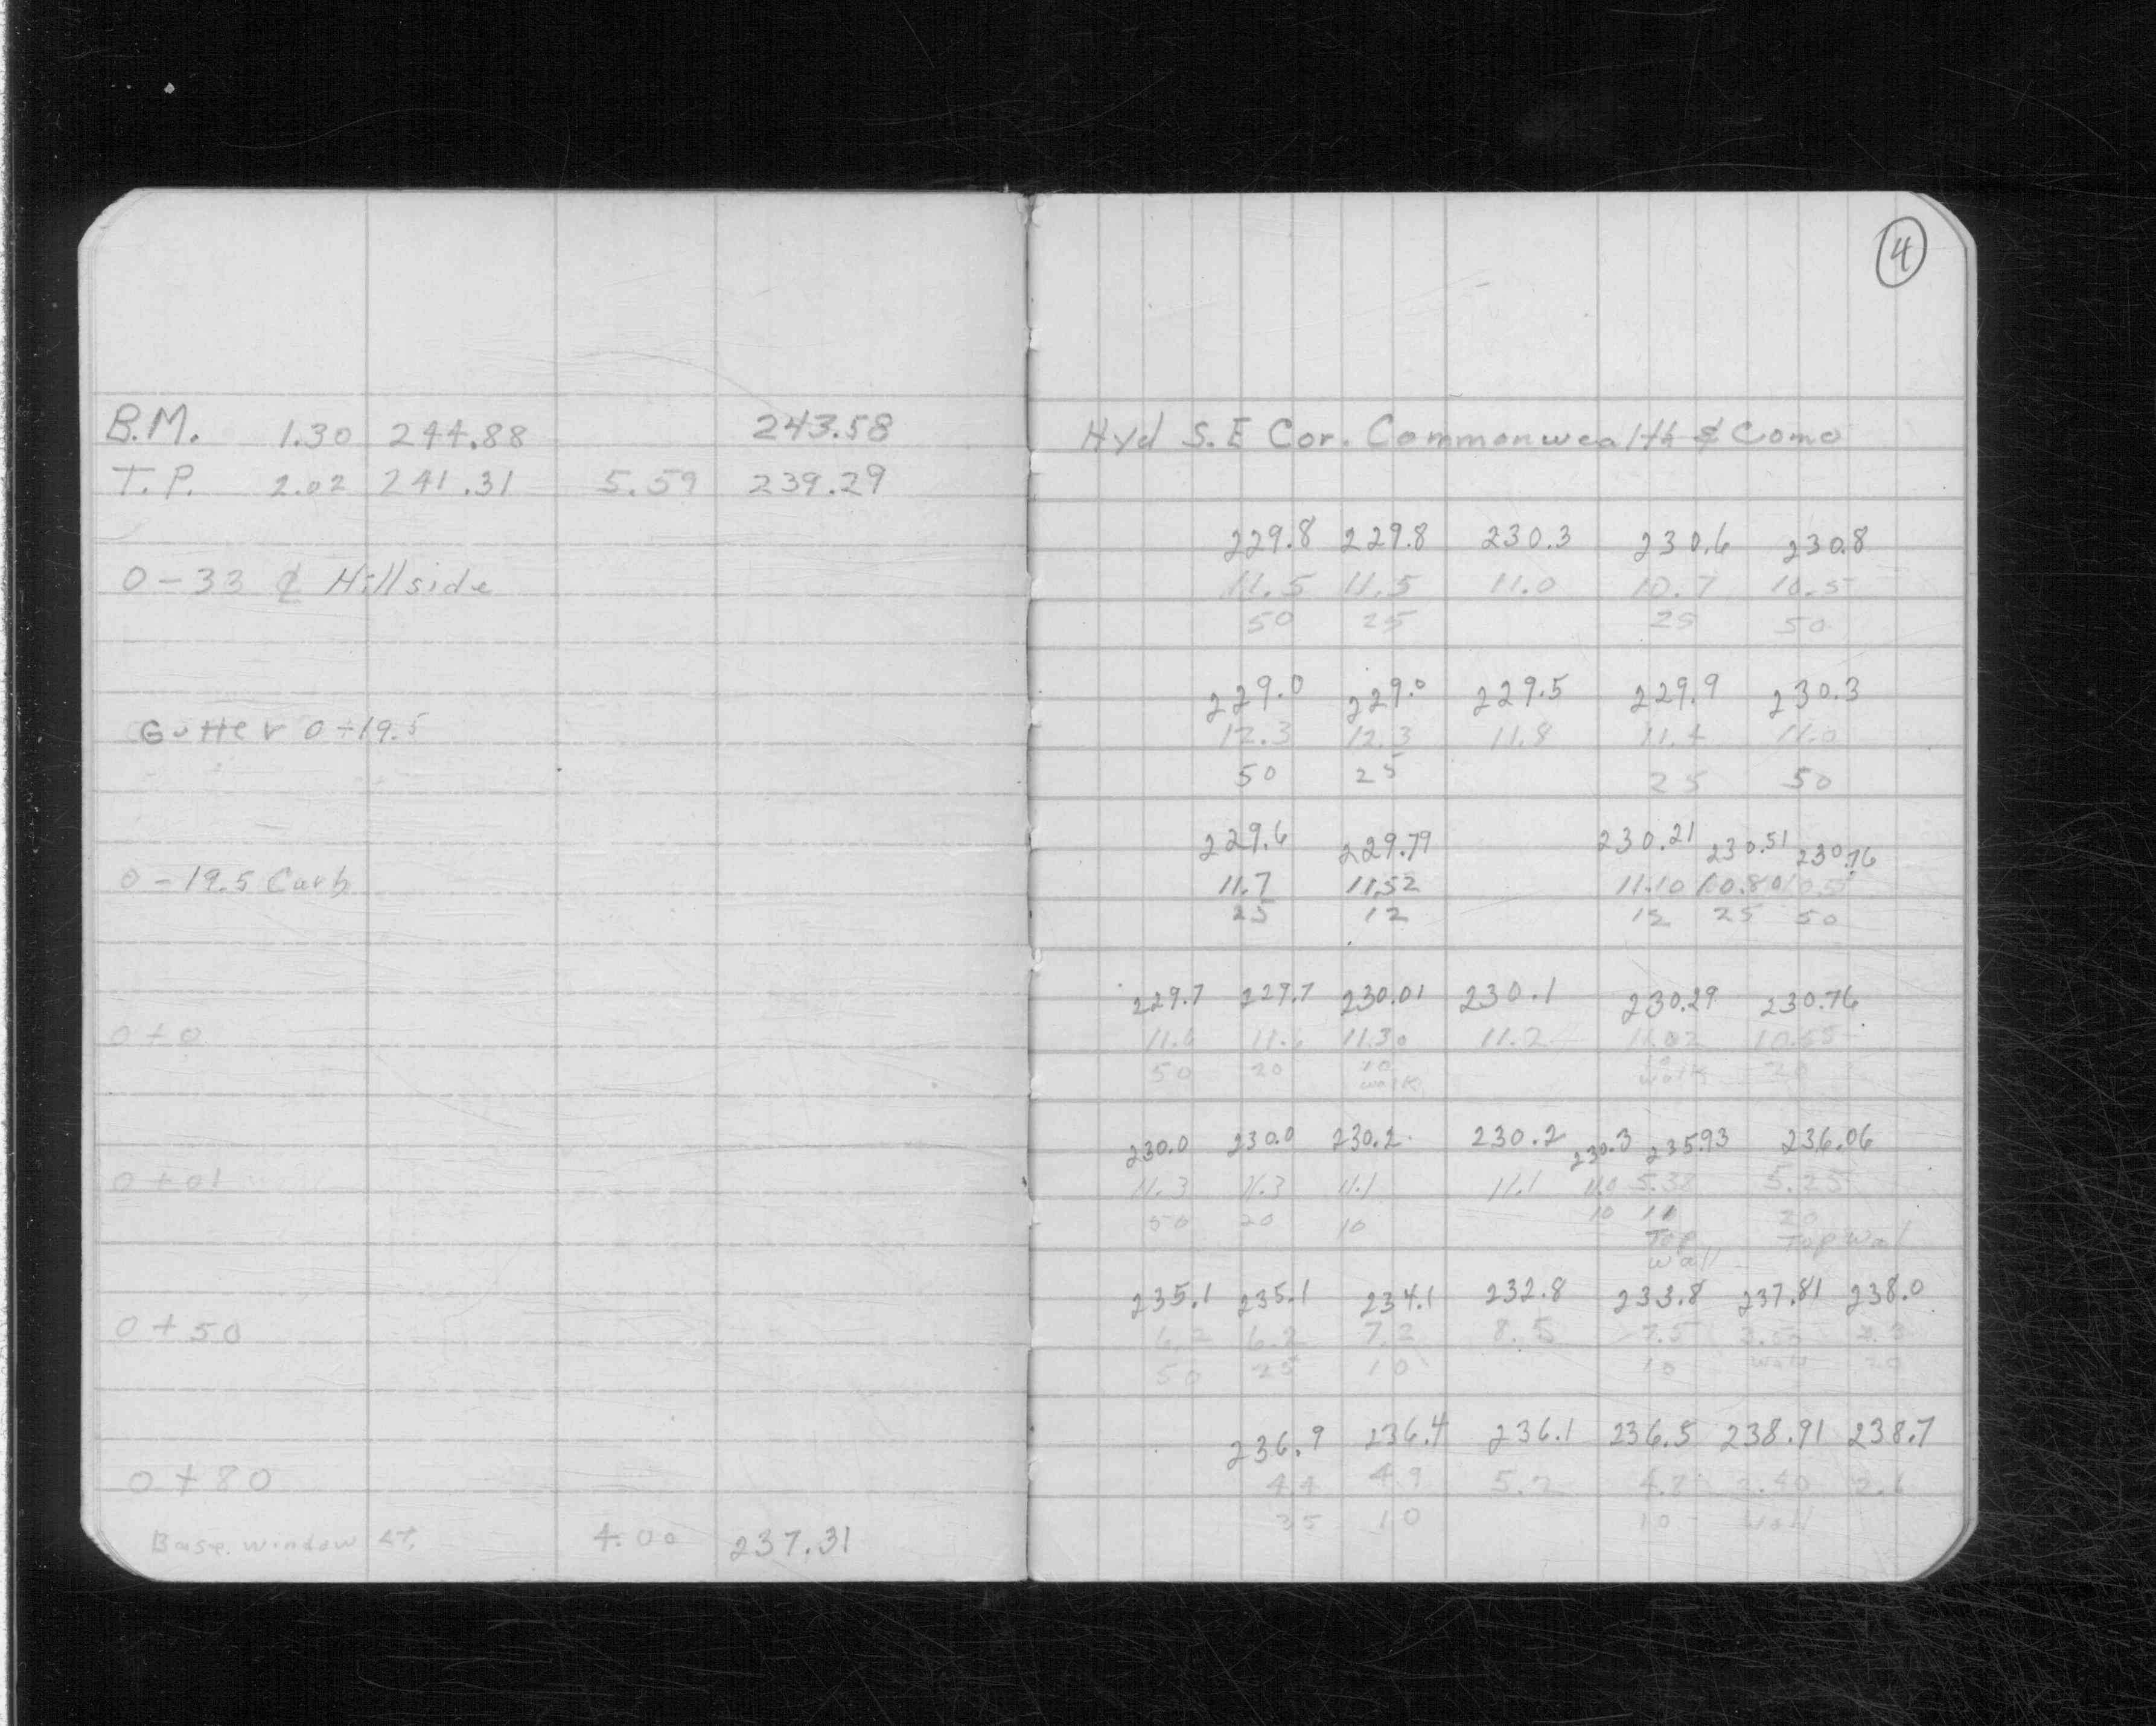 4
B.M. 1.30 244.88 243.58 Hyd S.E Cor. Commonwealth & Como
T.P. 2.02 241.31 5.59 239.29
229.8 229.8 230.3 230.6 230.8
0-33 ℄ Hillside 11.5 11.5 11.0 10.7 10.5
50 25 25 50
229.0 229.0 229.5 229.9 230.3
Gutter 0-19.5 12.3 12.3 11.8 11.4 11.0
50 25 25 50
229.6 229.79 230.21 230.51 230.76
0-19.5 Curb 11.7 11.52 11.10 10.80 10.5
25 12 12 25 50
229.7 229.7 230.01 230.1 230.29 230.76
0+0 11.6 11.6 11.30 11.2 11.02 10.55
50 20 10 20
walk walk
230.0 230.0 230.2 230.2 230.3 235.93 236.06
0+01 11.3 11.3 11.1 11.1 11.0 5.38 5.25
50 20 10 10 11 20
Top Top wal
wall
235.1 235.1 234.1 232.8 233.8 237.81 238.0
0+50 6.2 6.2 7.2 8.5 7.5 3.50 3.3
50 25 10 10 wall 20
236.9 236.4 236.1 236.5 238.91 238.7
0+80 4.4 4.9 5.2 4.8 2.40 2.6
35 10 10 wall
Base. window Lt. 4.00 237.31